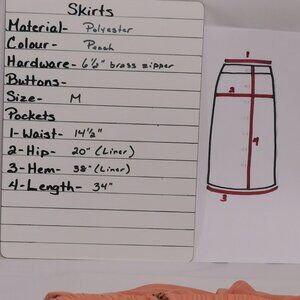 Skirts
Material- Polyester
Colour- Peach
Hardware- 6½" brass zipper
Buttons-
Size- M
Pockets
1-Waist- 14½"
2-Hip- 20" (Liner)
3-Hem- 38" (Liner)
4-Length- 34"
1
2
4
3